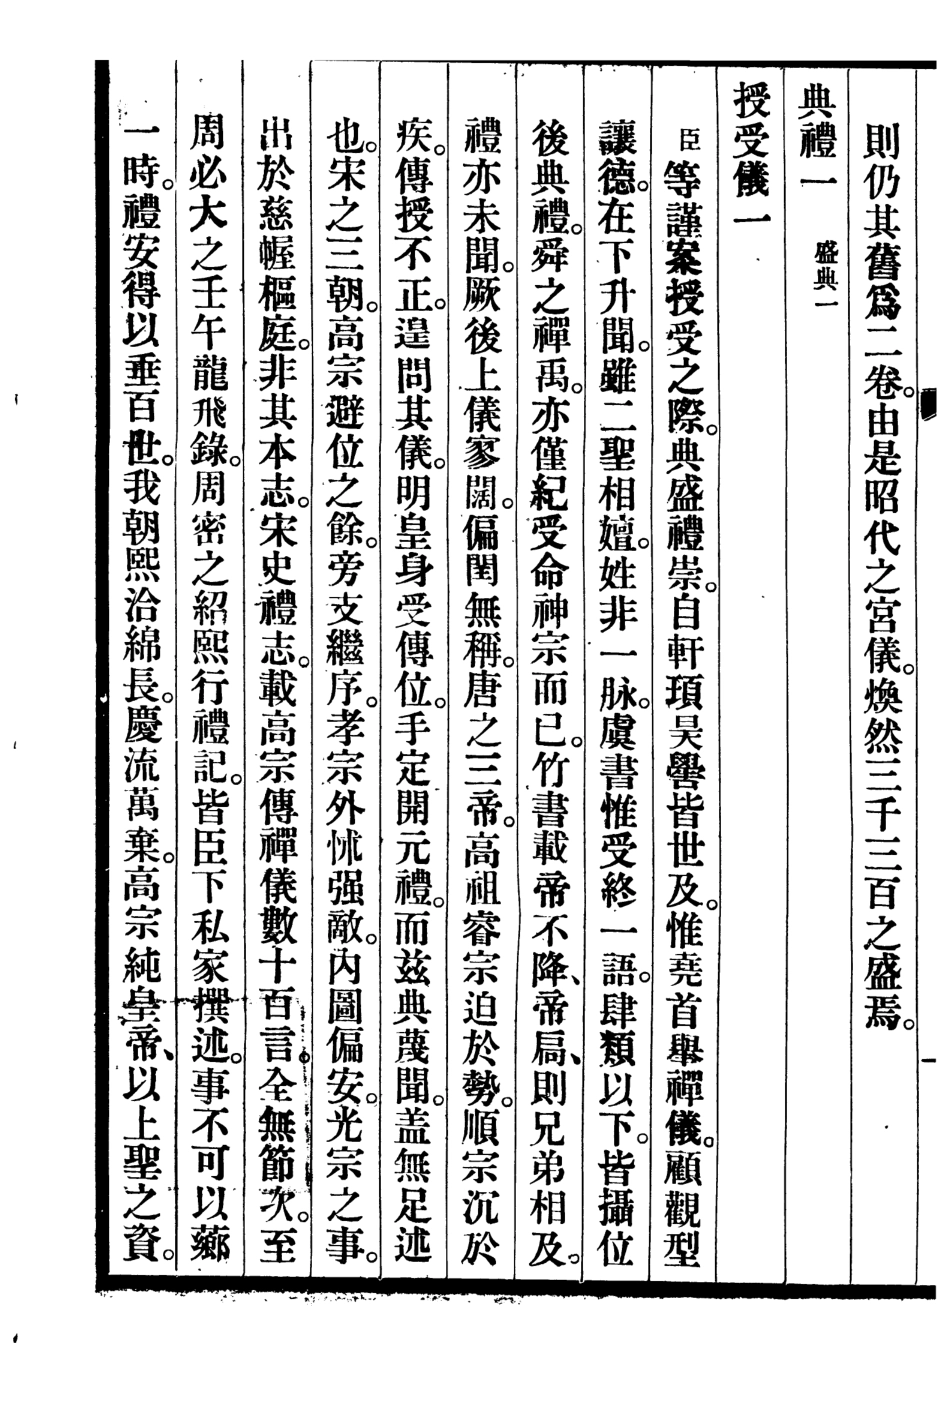 則仍其舊爲二卷。由是昭代之宮儀。煥然三千三百之盛焉。
典禮一 盛典一
授受儀一
臣等謹案授受之際。典盛禮崇。自軒頊昊嚳皆世及。惟堯首舉禪儀。顧觀型
讓德。在下升聞。雖二聖相嬗。姓非一脉。虞書惟受終一語。肆類以下。皆攝位
後典禮。舜之禪禹。亦僅紀受命神宗而已。竹書載帝不降、帝扃、則兄弟相及。
禮亦未聞。厥後上儀寥闊。偏閏無稱。唐之三帝。高祖睿宗迫於勢。順宗沉於
疾。傳授不正。遑問其儀。明皇身受傳位。手定開元禮。而茲典蔑聞。盖無足述
也。宋之三朝。高宗避位之餘。旁支繼序。孝宗外怵强敵。內圖偏安。光宗之事。
出於慈幄樞庭。非其本志。宋史禮志。載高宗傳禪儀數十百言。全無節次。至
周必大之壬午龍飛錄。周密之紹熙行禮記。皆臣下私家撰述。事不可以薌
一時。禮安得以垂百世。我朝熙洽綿長。慶流萬棄。高宗純皇帝、以上聖之資。